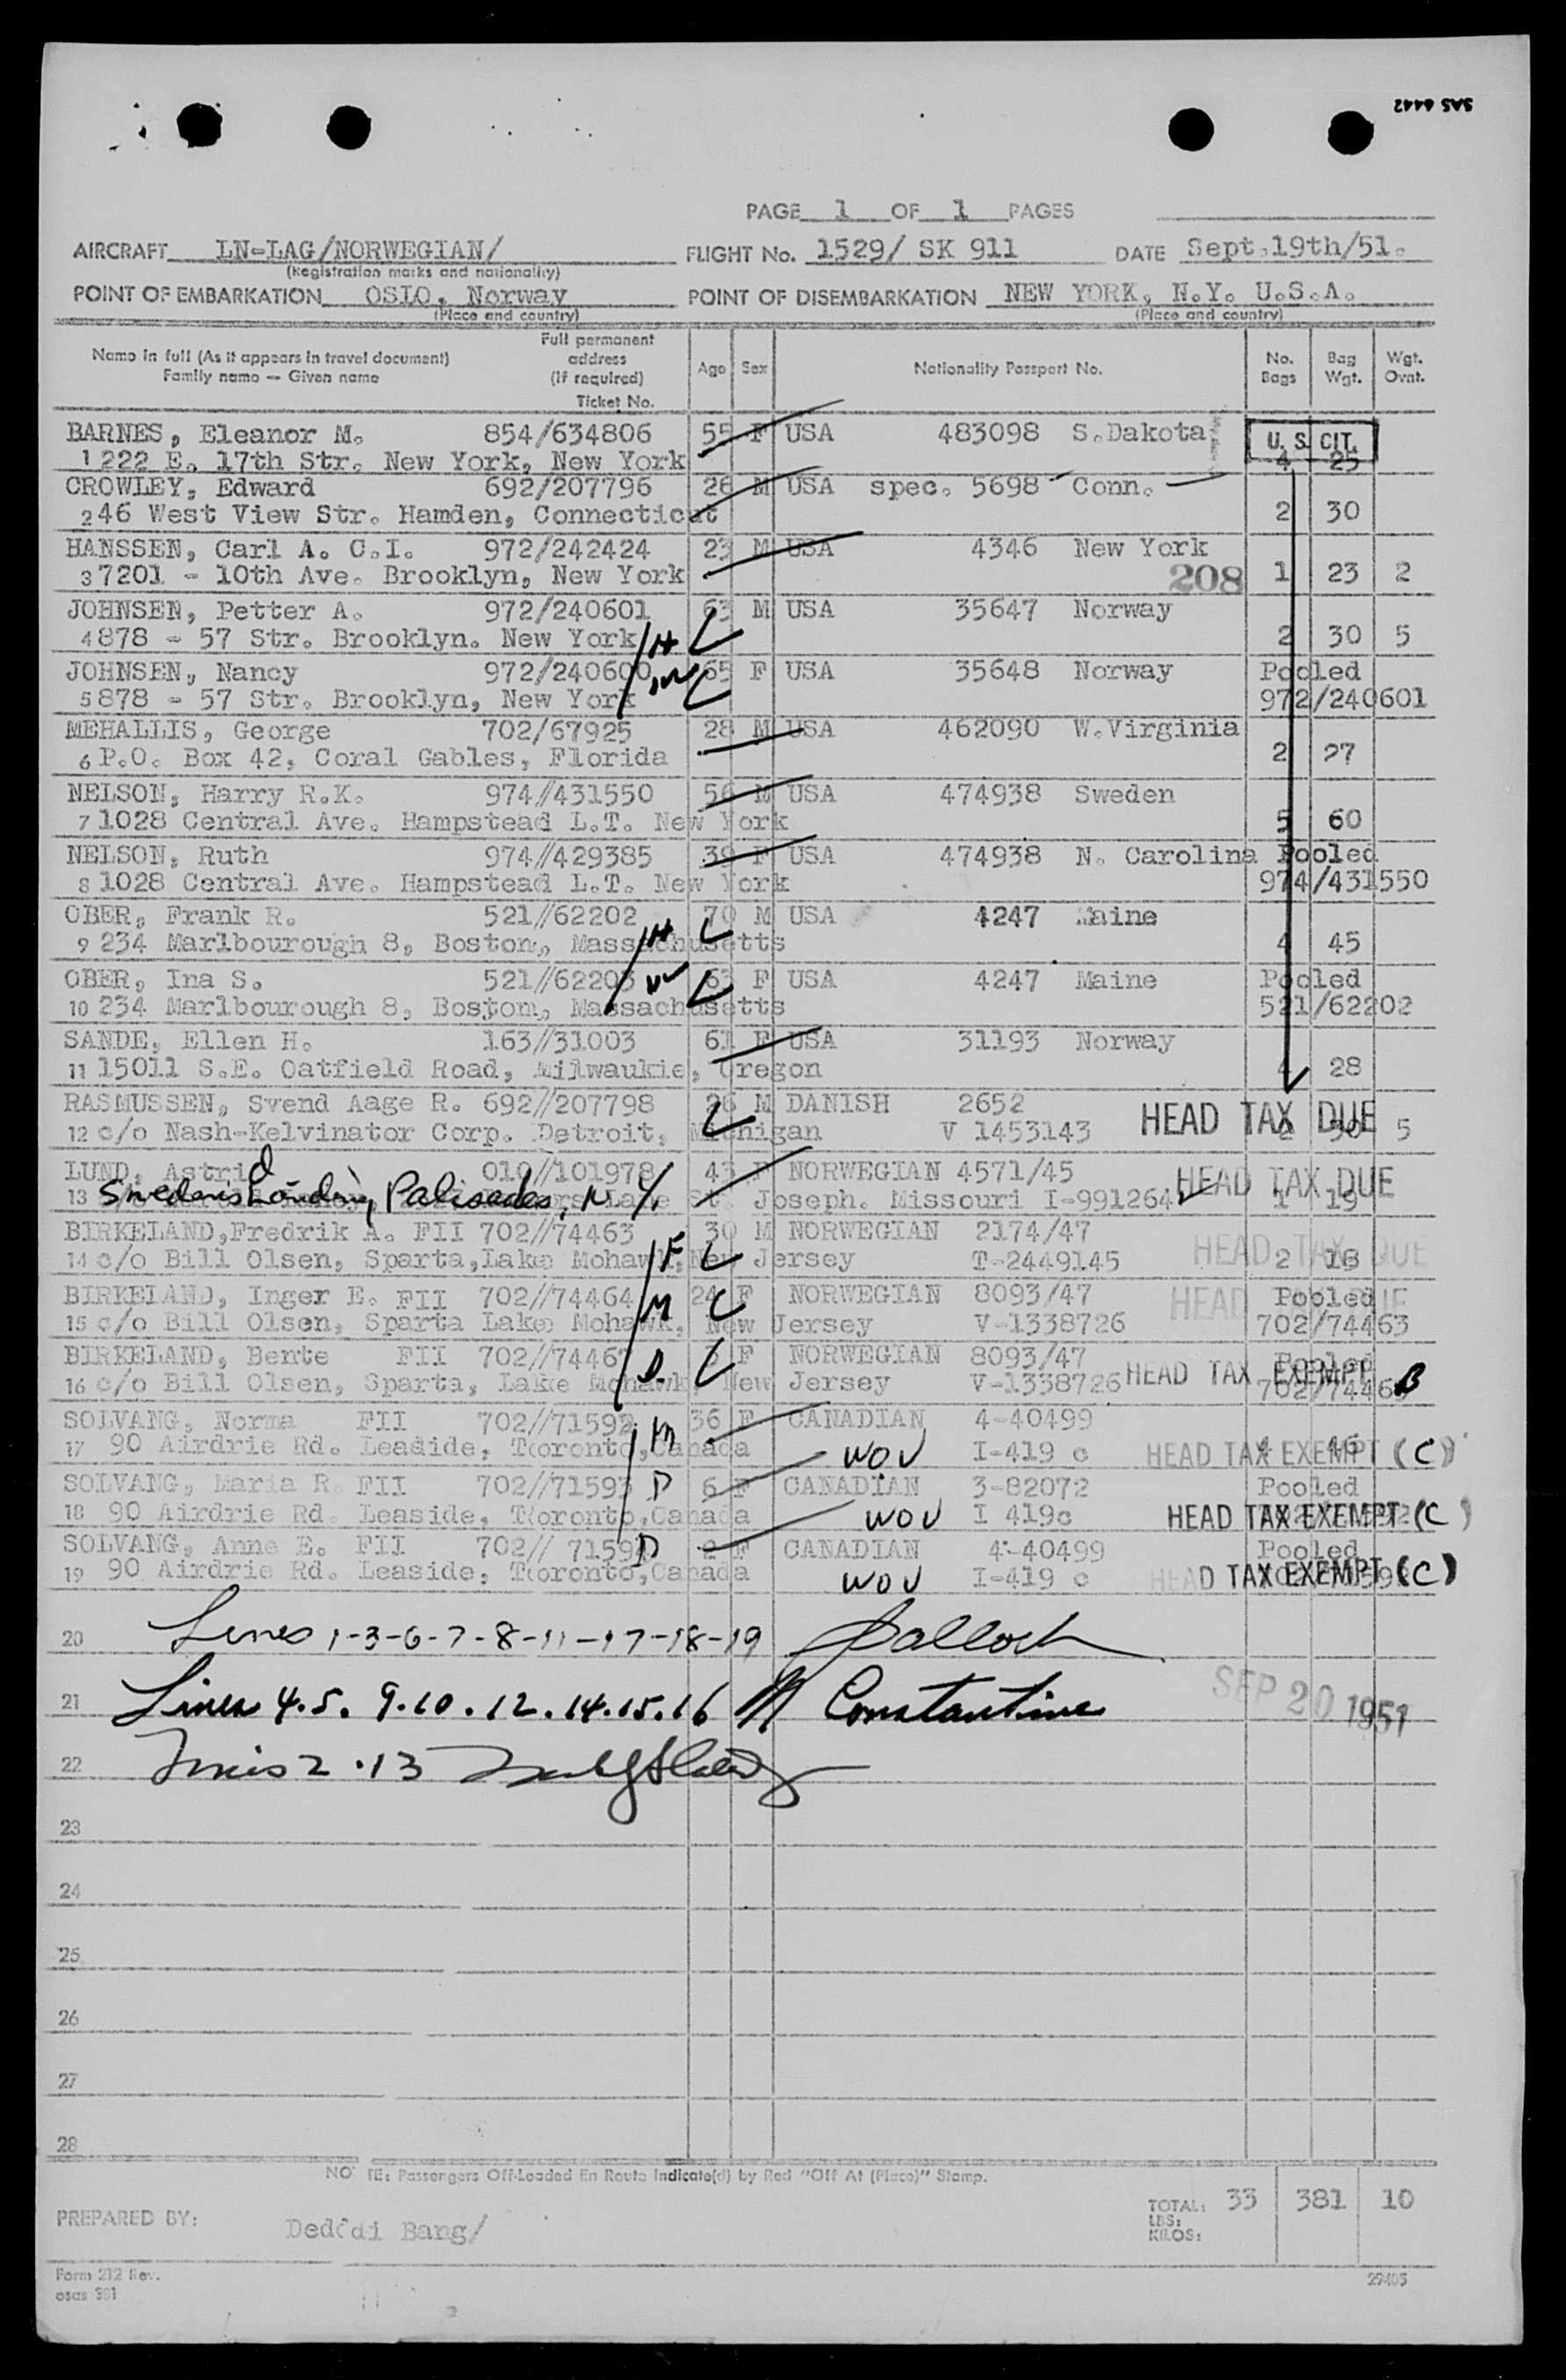 SAS 6442
PAGE 1 OF 1 PAGES
AIRCRAFT LN-LAG/NORWEGIAN/ FLIGHT No. 1529/ SK 911 DATE Sept.19th/51.
(Registration marks and nationality)
POINT OF EMBARKATION OSLO, Norway POINT OF DISEMBARKATION NEW YORK, N.Y. U.S.A.
(Place and country) (Place and country)
Name in full (As it appears in travel document) Family name — Given name Full permanent address (If required) Ticket No. Age Sex Nationality Passport No. No. Bags Bag Wgt. Wgt. Ovnt.
BARNES, Eleanor M. 854/634806 55 F USA 483098 S.Dakota U. S. CIT.
1 222 E. 17th Str. New York, New York 4 25
CROWLEY, Edward 692/207796 26 M USA spec. 5698 Conn.
2 46 West View Str. Hamden, Connecticut 2 30
HANSSEN, Carl A. C.I. 972/242424 23 M USA 4346 New York
3 7201 - 10th Ave. Brooklyn, New York 208 1 23 2
JOHNSEN, Petter A. 972/240601 63 M USA 35647 Norway
4 878 - 57 Str. Brooklyn. New York H 2 30 5
JOHNSEN, Nancy 972/240600 W 65 F USA 35648 Norway Pooled
5 878 - 57 Str. Brooklyn, New York 972/240601
MEHALLIS, George 702/67925 28 M USA 462090 W.Virginia
6 P.O. Box 42, Coral Gables, Florida 2 27
NELSON, Harry R.K. 974//431550 56 M USA 474938 Sweden
7 1028 Central Ave. Hampstead L.T. New York 5 60
NELSON, Ruth 974//429385 39 F USA 474938 N. Carolina Pooled
8 1028 Central Ave. Hampstead L.T. New York 974/431550
OBER, Frank R. 521//62202 70 M USA 4247 Maine
9 234 Marlbourough 8, Boston, Massachusetts H 4 45
OBER, Ina S. 521//62203 W 63 F USA 4247 Maine Pooled
10 234 Marlbourough 8, Boston, Massachusetts 521/62202
SANDE, Ellen H. 163//31003 61 F USA 31193 Norway
11 15011 S.E. Oatfield Road, Milwaukie, Oregon 4 28
RASMUSSEN, Svend Aage R. 692//207798 26 M DANISH 2652 HEAD TAX DUE
12 c/o Nash-Kelvinator Corp. Detroit, Michigan V 1453143 2 30 5
LUND, Astrid 010//101978 43 F NORWEGIAN 4571/45 HEAD TAX DUE
13 Sneden's Landing, Palisades, N.Y. St. Joseph. Missouri I-991264 1 19
BIRKELAND,Fredrik A. FII 702//74463 30 M NORWEGIAN 2174/47 HEAD TAX DUE
14 c/o Bill Olsen, Sparta,Lake Mohawk,New Jersey F T-2449145 2 18
BIRKELAND, Inger E. FII 702//74464 24 F NORWEGIAN 8093/47 HEAD Pooled
15 c/o Bill Olsen, Sparta Lake Mohawk, New Jersey M V-1338726 702/74463
BIRKELAND, Bente FII 702//74467 F NORWEGIAN 8093/47 Pooled
16 c/o Bill Olsen, Sparta, Lake Mohawk, New Jersey D. V-1338726 HEAD TAX EXEMPT B
SOLVANG, Norma FII 702//71592 M 36 F CANADIAN 4-40499
17 90 Airdrie Rd. Leadide, Toronto,Canada WOV I-419 c HEAD TAX EXEMPT (C) 4 46
SOLVANG, Maria R. FII 702//71593 D 6 F CANADIAN 3-82072 Pooled
18 90 Airdrie Rd. Leaside, Toronto,Canada WOV I 419c HEAD TAX EXEMPT (C)
SOLVANG, Anne E. FII 702// 7159 D 2 F CANADIAN 4-40499 Pooled
19 90 Airdrie Rd. Leaside, Toronto,Canada WOV I-419 c HEAD TAX EXEMPT (C)
20 Lines 1-3-6-7-8-11-17-18-19
21 Lines 4.5. 9.10.12.14.15.16 M Constantine SEP 20 1951
22 Lines 2.13
23
24
25
26
27
28
NO TE: Passengers Off-Loaded En Route Indicate(d) by Red "Off At (Place)" Stamp.
TOTAL: 33 381 10
LBS:
KILOS:
PREPARED BY: Bang/
Form 212 Rev.
osas 381
29405